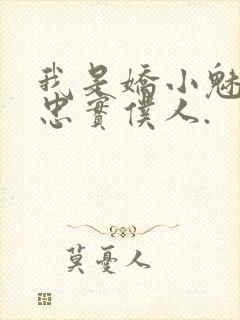 我是嬌小魅
忠實僕人.
莫憂人